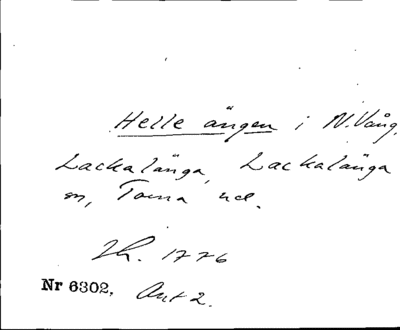 Helle ängen i N. Vång,
Lackalänga, Lackalänga
sn, Torna hd.
Lh. 1776
Nr 6302, Akt 2.